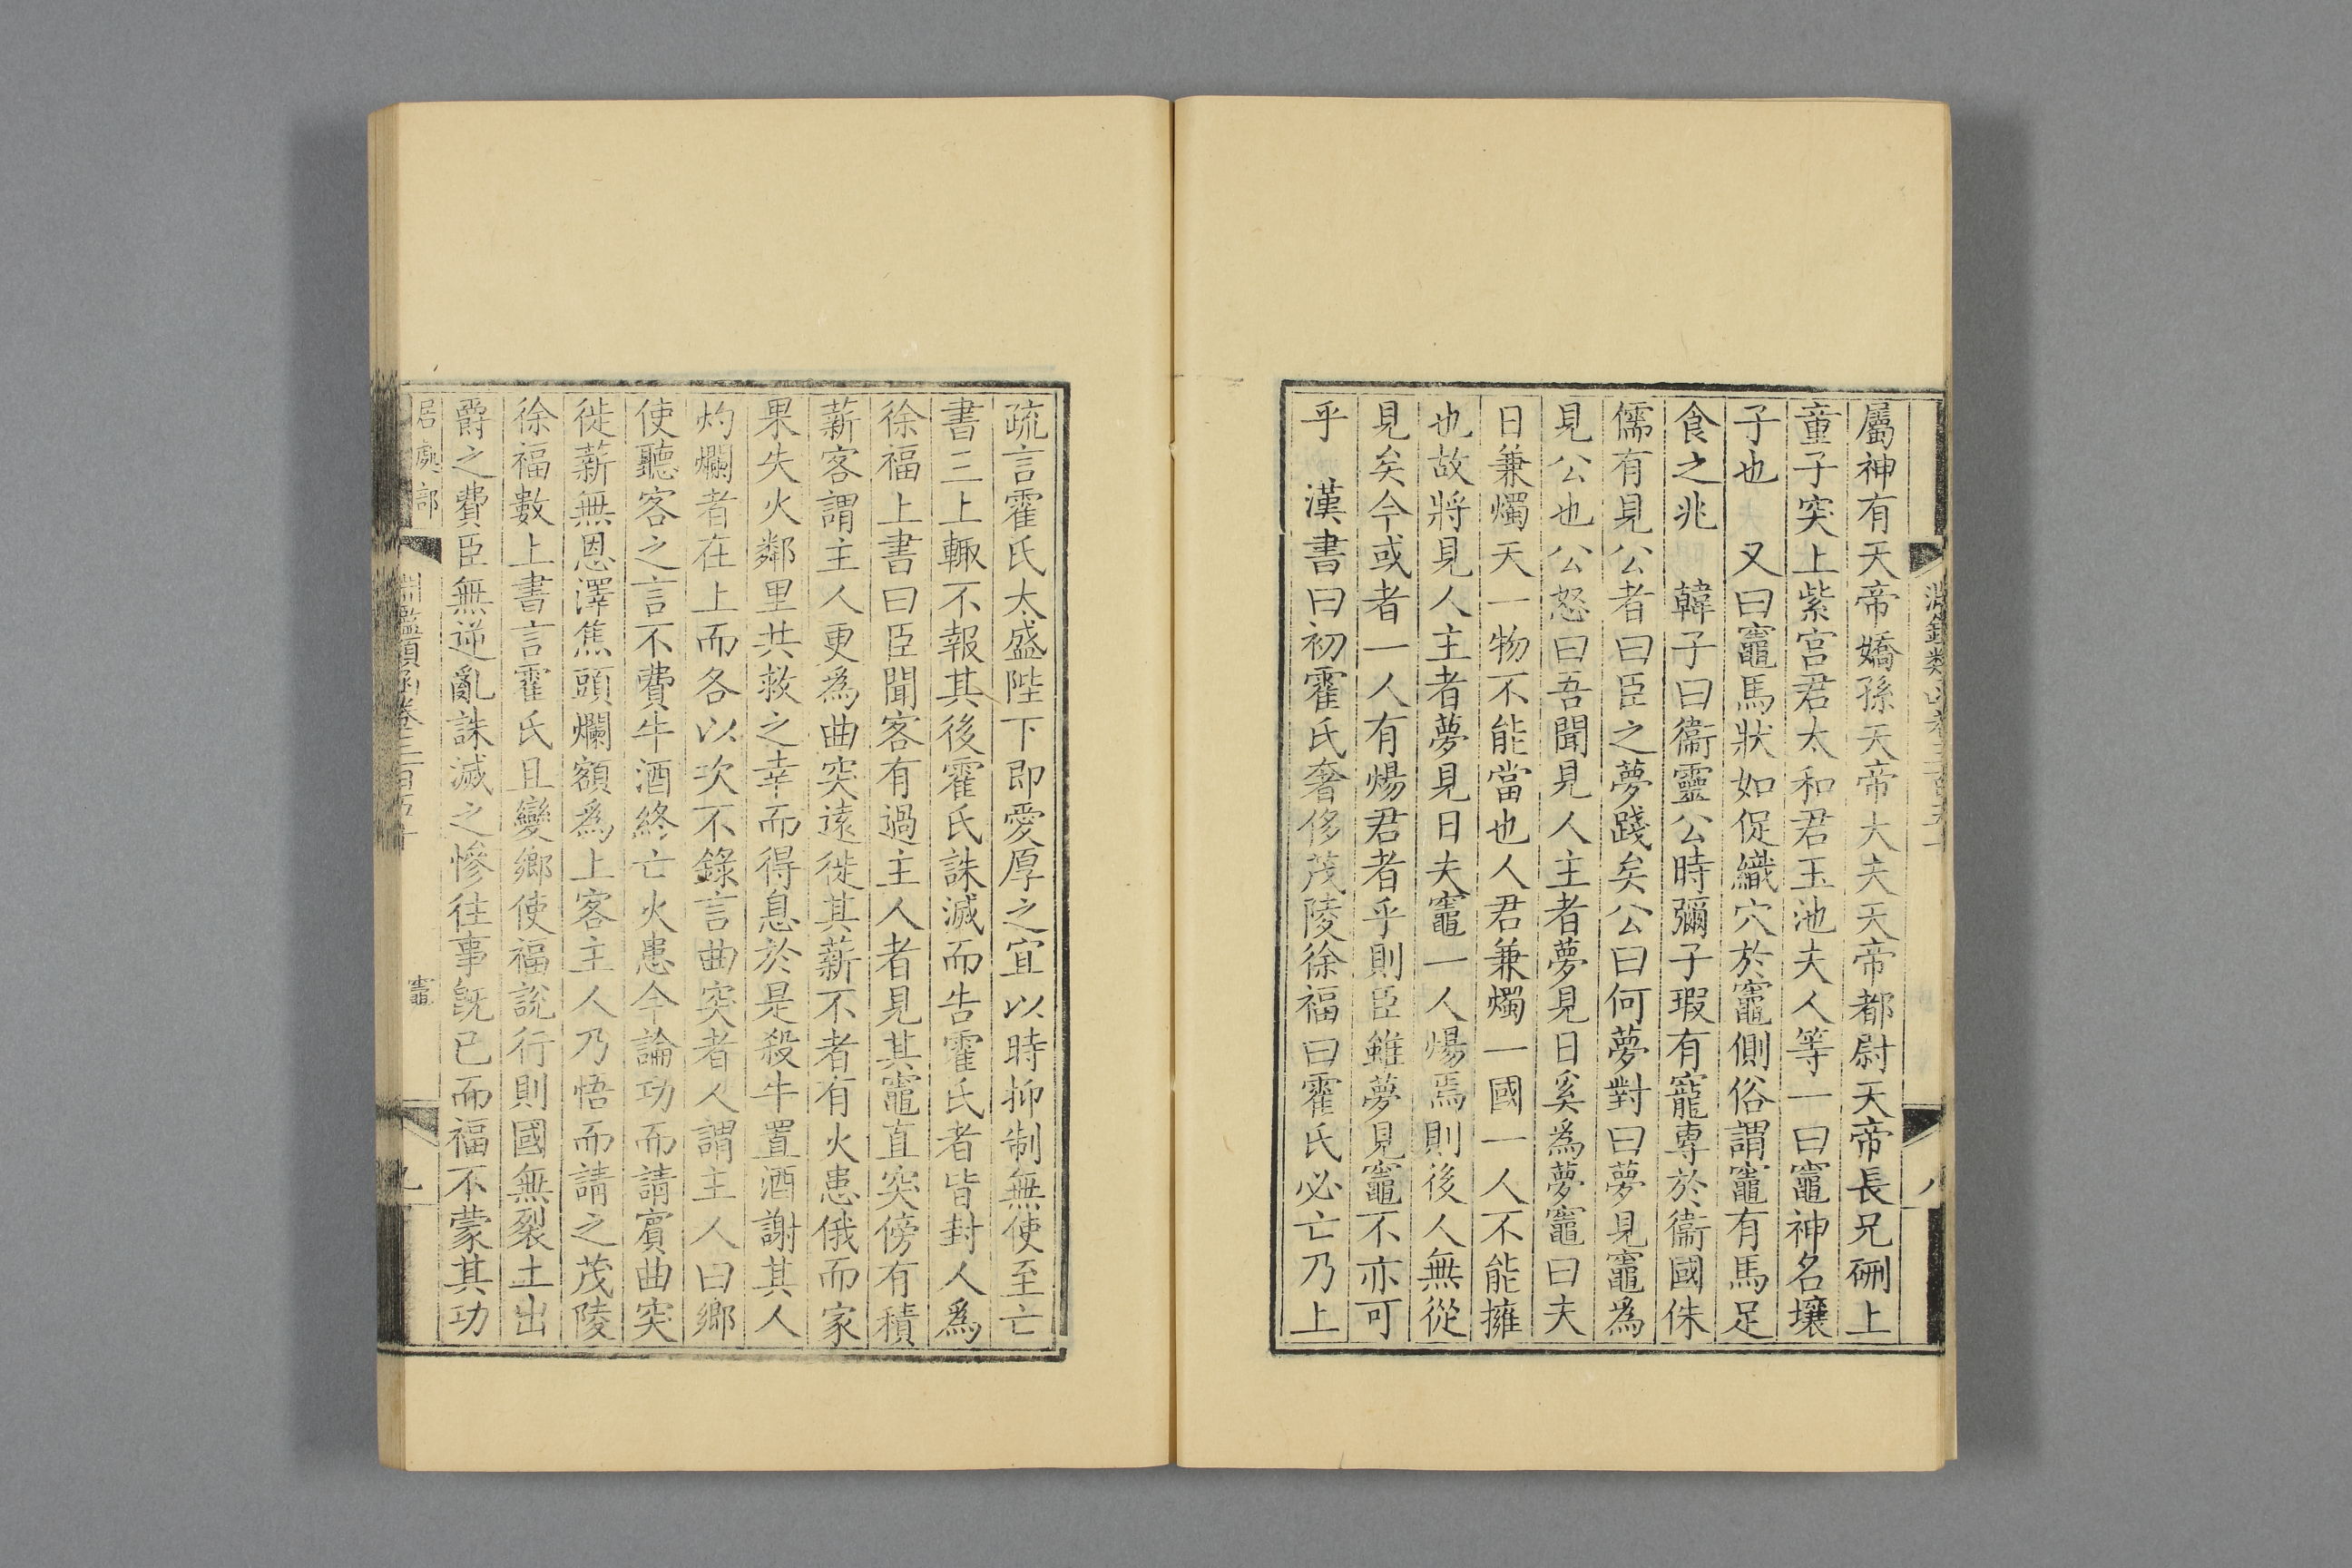 屬神有天帝嬌孫天帝大夫天帝都尉天帝長兄硎上
童子突上紫宮君太和君玉池夫人等一曰竈神名壤
子也　又曰竈馬狀如促織穴於竈側俗謂竈有馬足
食之兆　韓子曰衞靈公時彌子瑕有寵專於衞國侏
儒有見公者曰臣之夢踐矣公曰何夢對曰夢見竈爲
見公也公怒曰吾聞見人主者夢見日奚爲夢竈曰夫
日兼燭天一物不能當也人君兼燭一國一人不能擁
也故將見人主者夢見日夫竈一人煬焉則後人無從
見矣今或者一人有煬君者乎則臣雖夢見竈不亦可
乎　漢書曰初霍氏奢侈茂陵徐福曰霍氏必亡乃上
疏言霍氏太盛陛下即愛厚之宜以時抑制無使至亡
書三上輙不報其後霍氏誅滅而告霍氏者皆封人爲
徐福上書曰臣聞客有過主人者見其竈直突傍有積
薪客謂主人更爲曲突遠徙其薪不者有火患俄而家
果失火鄰里共救之幸而得息於是殺牛置酒謝其人
灼爛者在上而各以次不錄言曲突者人謂主人曰鄉
使聽客之言不費牛酒終亡火患今論功而請賓曲突
徙薪無恩澤焦頭爛額爲上客主人乃悟而請之茂陵
徐福數上書言霍氏且變鄉使福說行則國無裂土出
爵之費臣無逆亂誅滅之慘往事旣已而福不蒙其功
居處部
鑑類函卷三百五十
竈
九